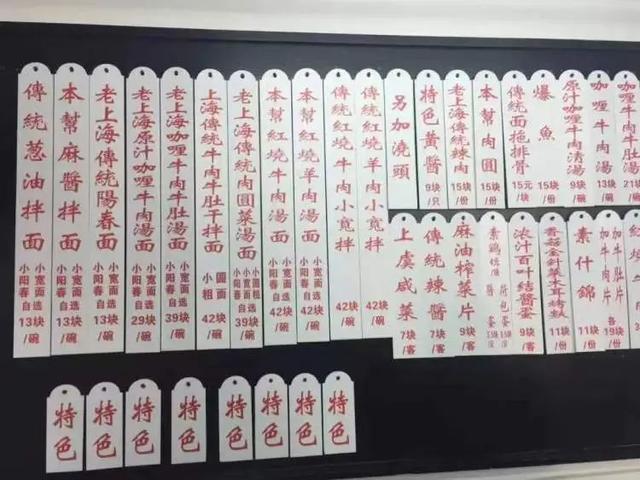 傳統葱油拌面 小宽面 小阳春 自选 13块/碗
本幫麻醬拌面 小宽面 小阳春 自选 13块/碗
老上海傳統陽春面 小宽面 小阳春 自选 13块/碗
老上海原汁咖喱牛肉湯面 小宽面 小阳春 自选 29块/碗
老上海咖喱牛肉牛肚湯面 小宽面 小阳春 自选 39块/碗
上海傳統牛肉牛肚干拌面 圆面 小粗 42块/碗
老上海傳統肉圓菜湯面 39块/碗
本幫紅燒牛肉湯面 小宽面 小阳春 自选 42块/碗
本幫紅燒羊肉湯面 小宽面 小阳春 自选 42块/碗
傳統紅燒牛肉小寬拌 42块/碗
傳統紅燒羊肉小寬拌 42块/碗
另加澆頭
特色黃醬 9块/只
老上海傳統辣肉 15块/份
本幫肉圓 15块/份
傳統面拖排骨 15元/块
爆魚 15块/份
原汁咖喱牛肉清湯 9块/碗
咖喱牛肉湯 13块/碗
咖喱牛 21块
上虞咸菜 7块/客
傳統辣醬 7块/客
麻油榨菜片 9块/客
素鷄
荷包蛋
浓汁百叶結醬蛋 9块/客
香菇金針菜木耳烤麩 11块/份
素什錦 11块/份
加牛肉片 加牛肚片 各19块/份
特色
特色
特色
特色
特色
特色
特色
特色